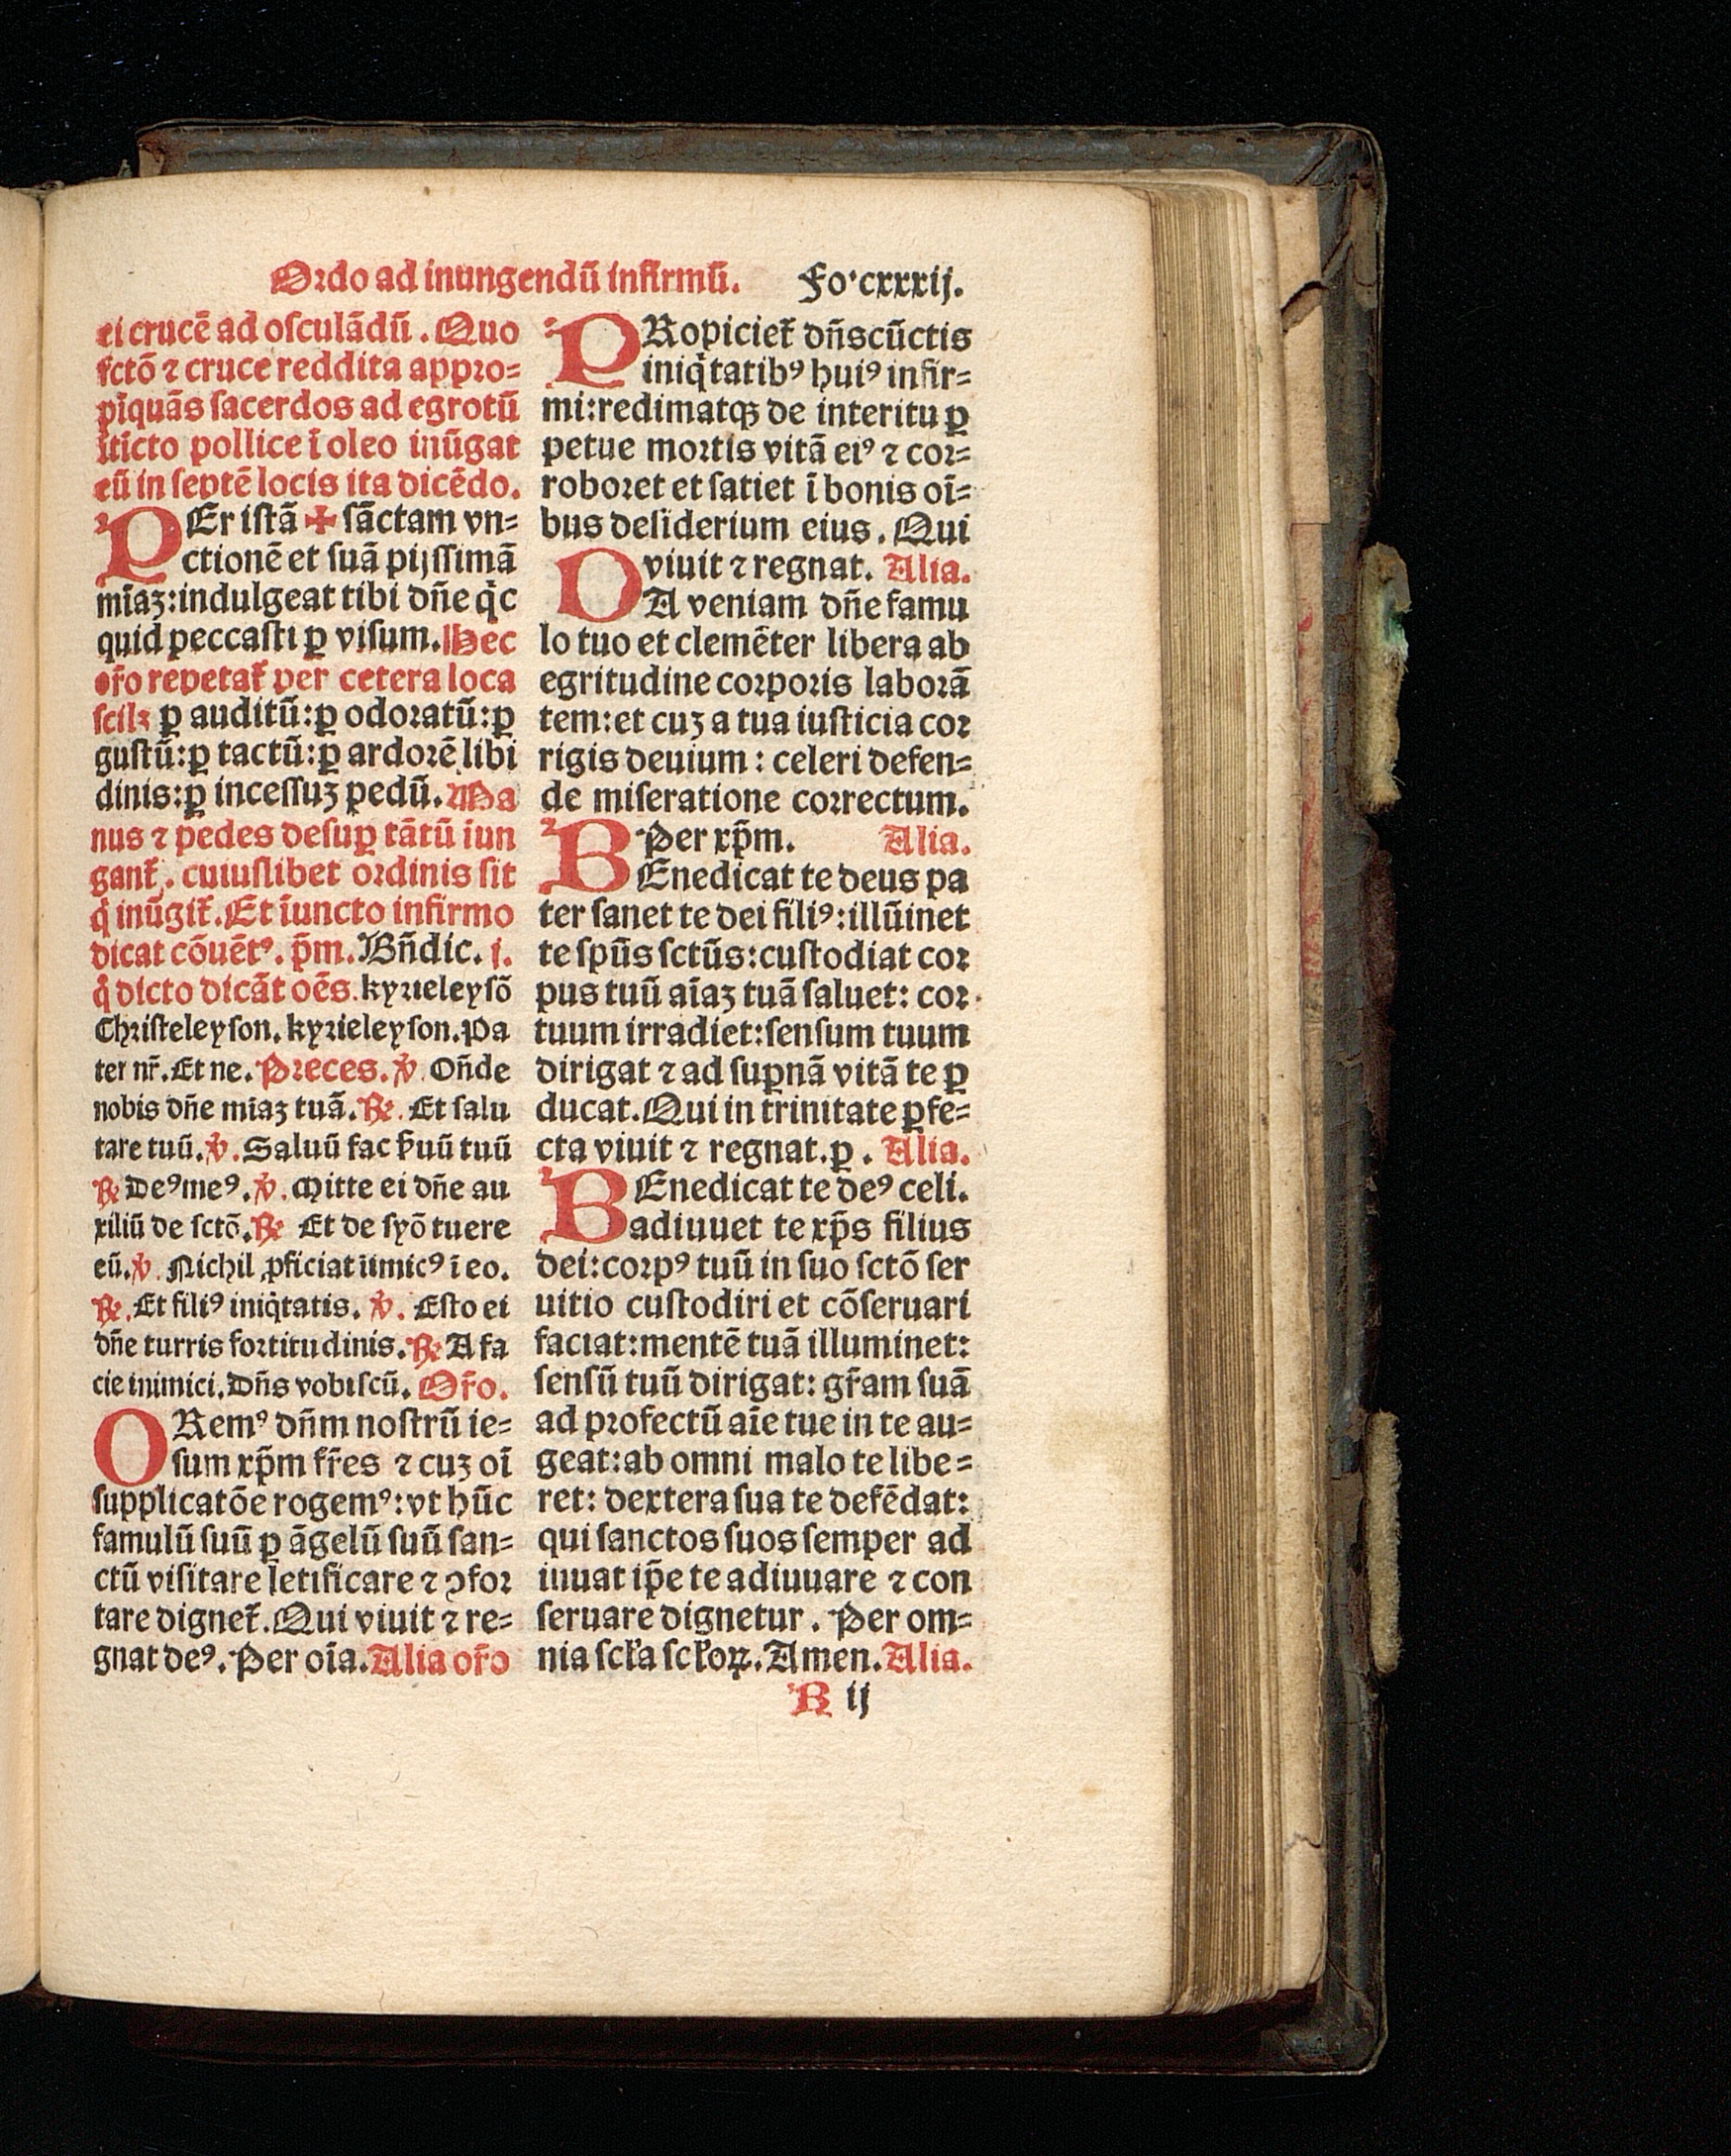 Ordo ad inungendū infirmū. Fo·cxxxij.
ei crucē ad osculādū. Quo
fctō ⁊ cruce reddita appro⸗
pīquās sacerdos ad egrotū
ītīcto pollice ī oleo inūgat
eū in septē locis ita dicēdo.
PEr istā ✠ sāctam vn⸗
ctionē et suā pijssimā
mīaꝫ: indulgeat tibi dn̄e qͥc
quid peccasti ꝑ visum. Hec
or̄o repetat᷑ per cetera loca
scilꝫ ꝑ auditū: ꝑ odoratū: ꝑ
gustū: ꝑ tactū: ꝑ ardorē libi
dinis: ꝑ incessuꝫ pedū. Ma
nus ⁊ pedes desuꝑ tātū iun
gant᷑. cuiuslibet ordinis sit
qͥ inūgit᷑. Et īuncto infirmo
dicat cōuētꝰ. p̄m. Bn̄dic. j.
qͦ dicto dicāt oēs. kyrieleysō
Christeleyson. kyrieleyson. Pa
ter nr̄. Et ne. Preces. ℣. On̄de
nobis dn̄e mīaꝫ tuā. ℟. Et salu
tare tuū. ℣. Saluū fac ẜuū tuū
℟ Deꝰ meꝰ. ℣. Mitte ei dn̄e au
xiliū de sctō. ℟ Et de syō tuere
eū. ℣. Nichil ꝓficiat iīmicꝰ ī eo.
℟. Et filiꝰ iniqͥtatis. ℣. Esto ei
dn̄e turris fortitudinis. ℟ A fa
cie inimici. Dn̄s vobiscū. Or̄o.
ORemꝰ dn̄m nostrū ie⸗
sum xp̄m fr̄es ⁊ cuꝫ oī
supplicatōe rogemꝰ: vt hūc
famulū suū ꝑ āgelū suū san⸗
ctū visitare letificare ⁊ ꝯfor
tare dignet᷑. Qui viuit ⁊ re⸗
gnat deꝰ. Per oīa. Alia or̄o
PRopiciet᷑ dn̄s cūctis
iniqͥtatibꝰ huiꝰ infir⸗
mi: redimatqꝫ de interitu ꝑ
petue mortis vitā eiꝰ ⁊ cor⸗
roboret et satiet ī bonis oī⸗
bus desiderium eius. Qui
viuit ⁊ regnat. Alia.
DA veniam dn̄e famu
lo tuo et clemēter libera ab
egritudine corporis laborā
tem: et cuꝫ a tua iusticia cor
rigis deuium: celeri defen⸗
de miseratione correctum.
Per xp̄m. Alia.
BEnedicat te deus pa
ter sanet te dei filiꝰ: illūinet
te spūs sctūs: custodiat cor
pus tuū aīaꝫ tuā saluet: cor
tuum irradiet: sensum tuum
dirigat ⁊ ad suꝑnā vitā te ꝑ
ducat. Qui in trinitate ꝑfe⸗
cta viuit ⁊ regnat. ꝑ. Alia.
BEnedicat te deꝰ celi.
adiuuet te xp̄s filius
dei: corpꝰ tuū in suo sctō ser
uitio custodiri et cōseruari
faciat: mentē tuā illuminet:
sensū tuū dirigat: gr̄am suā
ad profectū aīe tue in te au⸗
geat: ab omni malo te libe⸗
ret: dextera sua te defēdat:
qui sanctos suos semper ad
iuuat ip̄e te adiuuare ⁊ con
seruare dignetur. Per om⸗
nia scl̄a scl̄oꝝ. Amen. Alia.
R ij